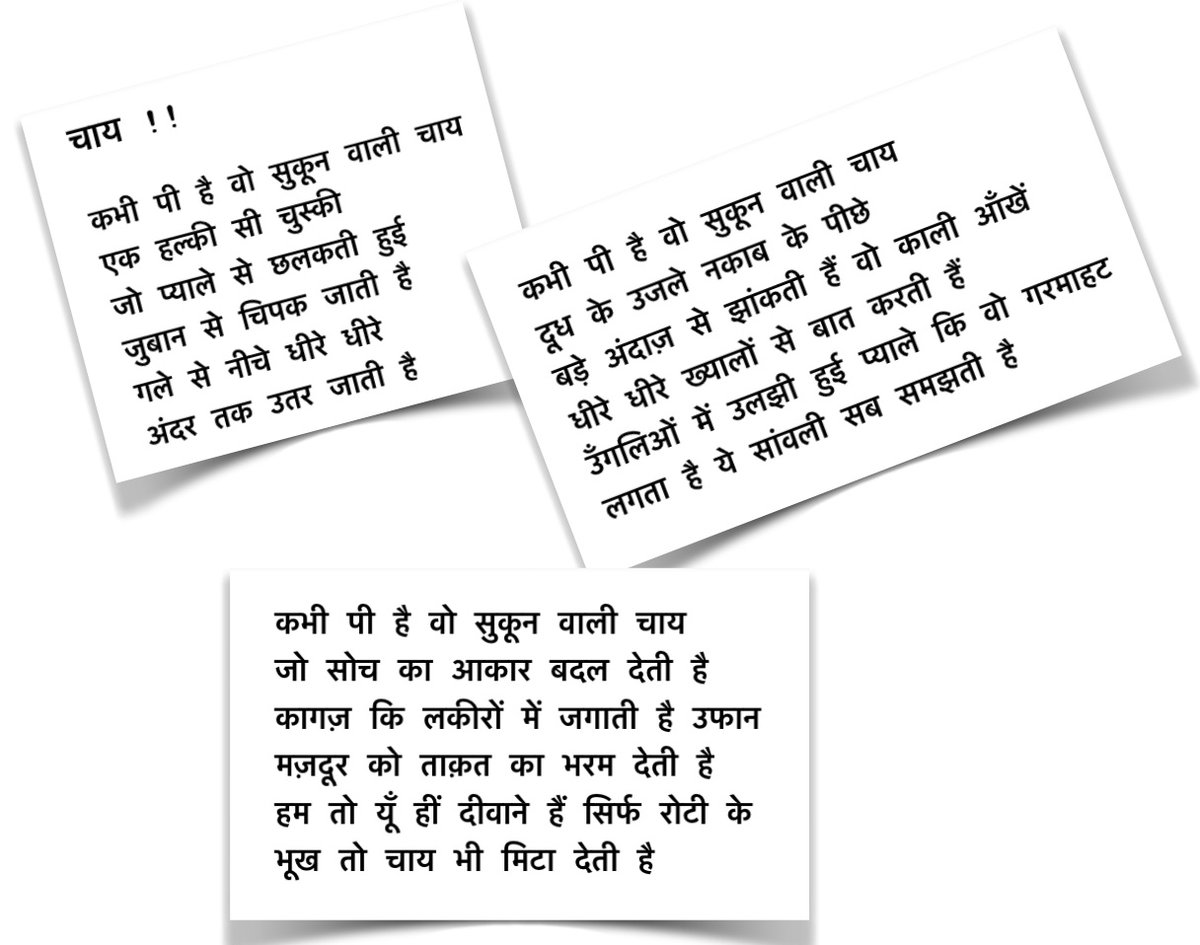 चाय !!
कभी पी है वो सुकून वाली चाय
एक हल्की सी चुस्की
जो प्याले से छलकती हुई
जुबान से चिपक जाती है
गले से नीचे धीरे धीरे
अंदर तक उतर जाती है
कभी पी है वो सुकून वाली चाय
दूध के उजले नकाब के पीछे
बड़े अंदाज़ से झांकती हैं वो काली आँखें
धीरे धीरे ख्यालों से बात करती हैं
उँगलिओं में उलझी हुई प्याले कि वो गरमाहट
लगता है ये सांवली सब समझती है
कभी पी है वो सुकून वाली चाय
जो सोच का आकार बदल देती है
कागज़ कि लकीरों में जगाती है उफान
मज़दूर को ताक़त का भरम देती है
हम तो यूँ हीं दीवाने हैं सिर्फ रोटी के
भूख तो चाय भी मिटा देती है